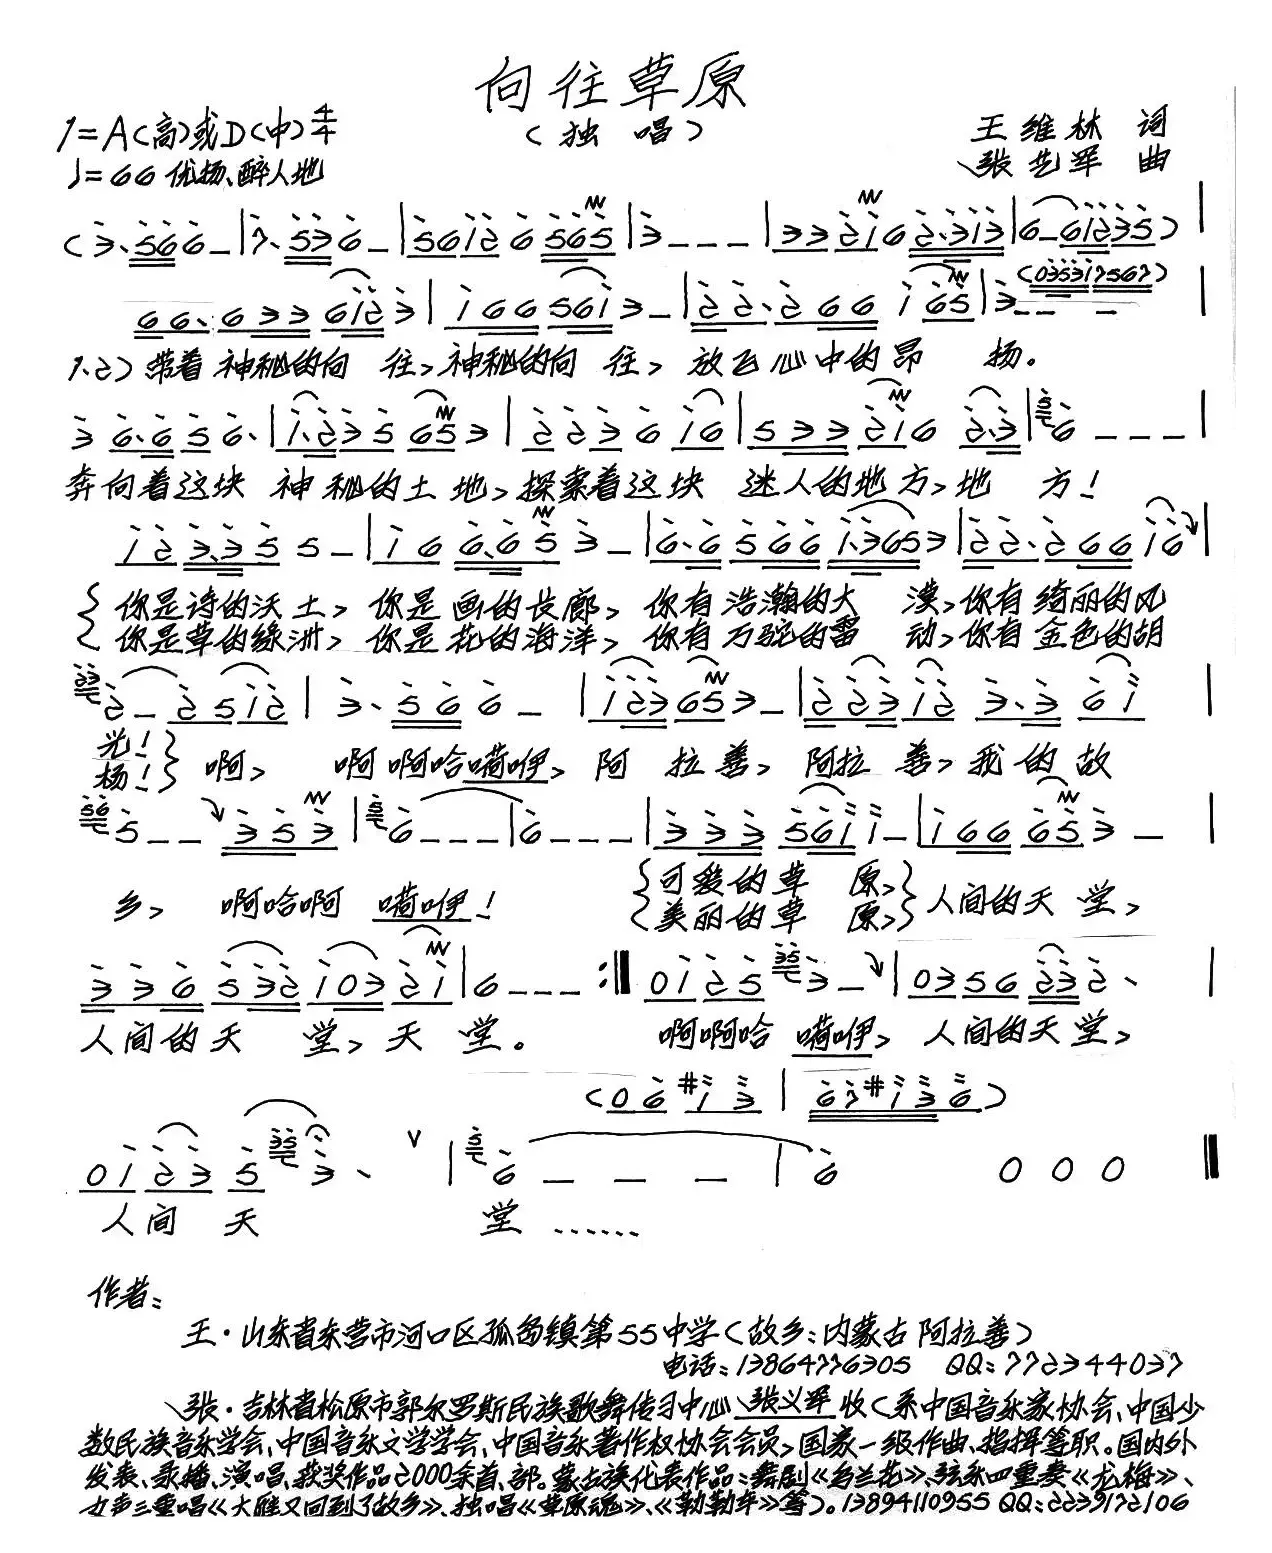 向往草原
1=A(高)或D(中) 4/4
(独 唱)
王维林 词
♩=66 优扬、醉人地
张艺军 曲
(3·566–|7·536–|56126565|3–––|332162·313|6–61235)
(035317567)
66·6336123|1665613–|22·266165|3–––
1、2)带着神秘的向 往,神秘的向 往, 放飞心中的昂 扬。
36·6566·|1·235653|223616|5332162·3|6–––
奔向着这块 神秘的土地,探索着这块 迷人的地方,地 方!
123·355–|166·653–|6·65661·3653|22·26616|
你是诗的沃土, 你是画的长廊, 你有浩瀚的大 漠,你有绮丽的风
你是草的绿洲, 你是花的海洋, 你有万驼的雷 动,你有金色的胡
2–2512|3·566–|123653–|223123·361|
光! 啊, 啊啊哈嗬咿,阿 拉善, 阿拉 善,我的故
杨!
5––353|6–––|6–––|3335611–|166653–|
乡, 啊哈啊 嗬咿! 可爱的草 原, 人间的天堂,
美丽的草 原,
33653210321|6–––:‖01253–|0356232·|
人间的天 堂,天 堂。 啊啊哈 嗬咿, 人间的天堂,
(06#13|67#136)
012353·|6–––|6 000‖
人间 天 堂……
作者:
王·山东省东营市河口区孤岛镇第55中学(故乡:内蒙古阿拉善)
电话:13864776305 QQ:772344037
张·吉林省松原市郭尔罗斯民族歌舞传习中心张义军收(系中国音乐家协会、中国少
数民族音乐学会、中国音乐文学学会、中国音乐著作权协会会员,国家一级作曲、指挥等职。国内外
发表、录播、演唱、获奖作品2000余首、部。蒙古族代表作品:舞剧《乌兰花》、弦乐四重奏《龙梅》、
女声三重唱《大雁又回到了故乡》、独唱《草原魂》、《勒勒车》等)。13894110955 QQ:2239172106